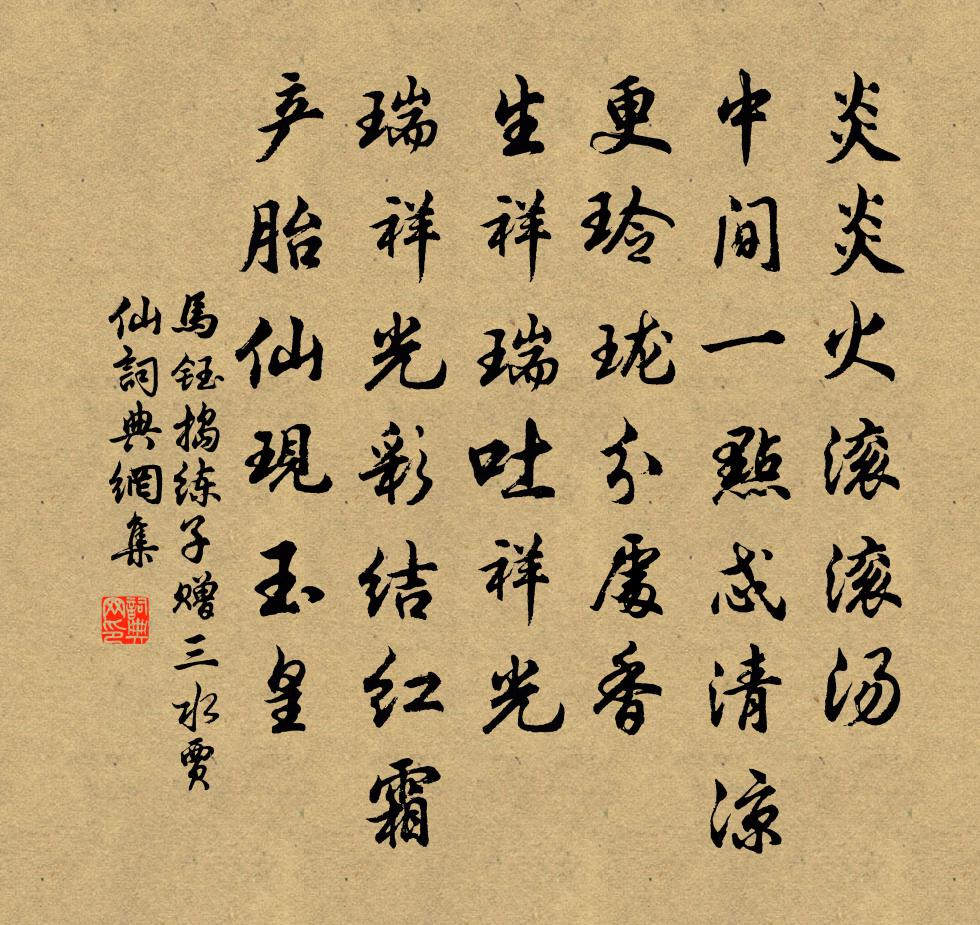 炎炎火滚滚汤
中间一點忒清涼
更玲珑分處香
生祥瑞吐祥光
瑞祥光彩结红霜
产胎仙現玉皇
馬钰搗练子赠三水贾
仙詞典網集
詞典网印